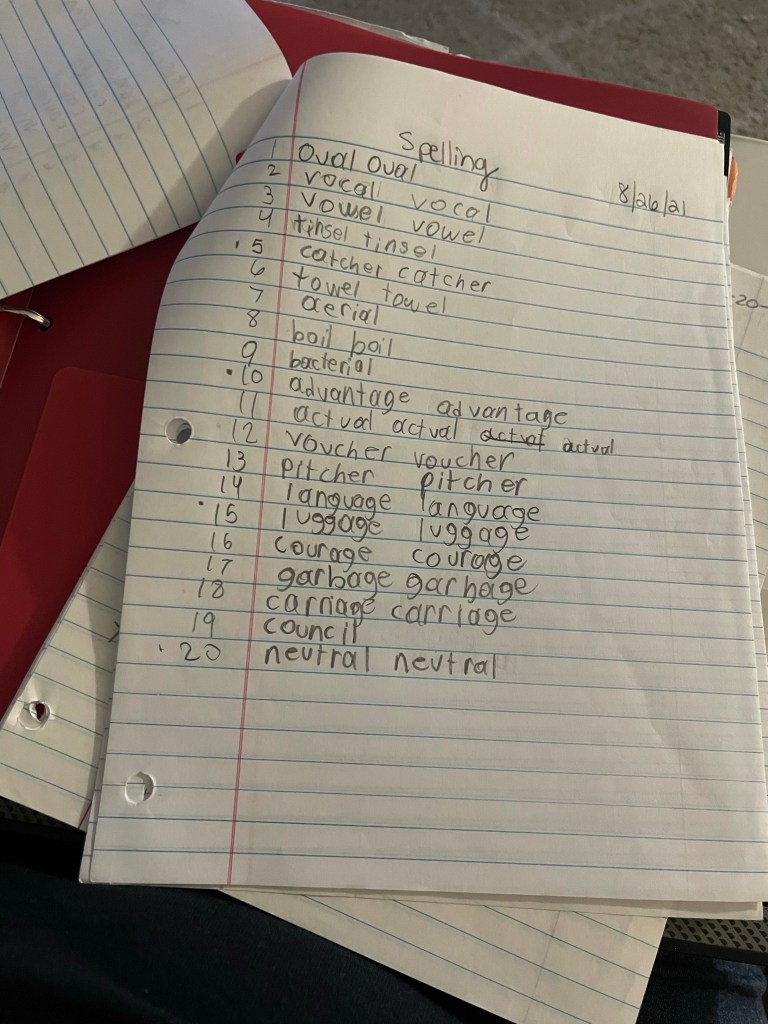 Spelling
8/26/21
1 oval oval
2 vocall vocal
3 vowel vowel
4 tinsel tinsel
5 catcher catcher
6 towel towel
7 aerial
8 boil boil
9 bacterial
10 advantage advantage
11 actual actual actual actual
12 voucher voucher
13 pitcher pitcher
14 language language
15 luggage luggage
16 courage courage
17 garbage garbage
18 carriage carriage
19 council
20 neutral neutral
20